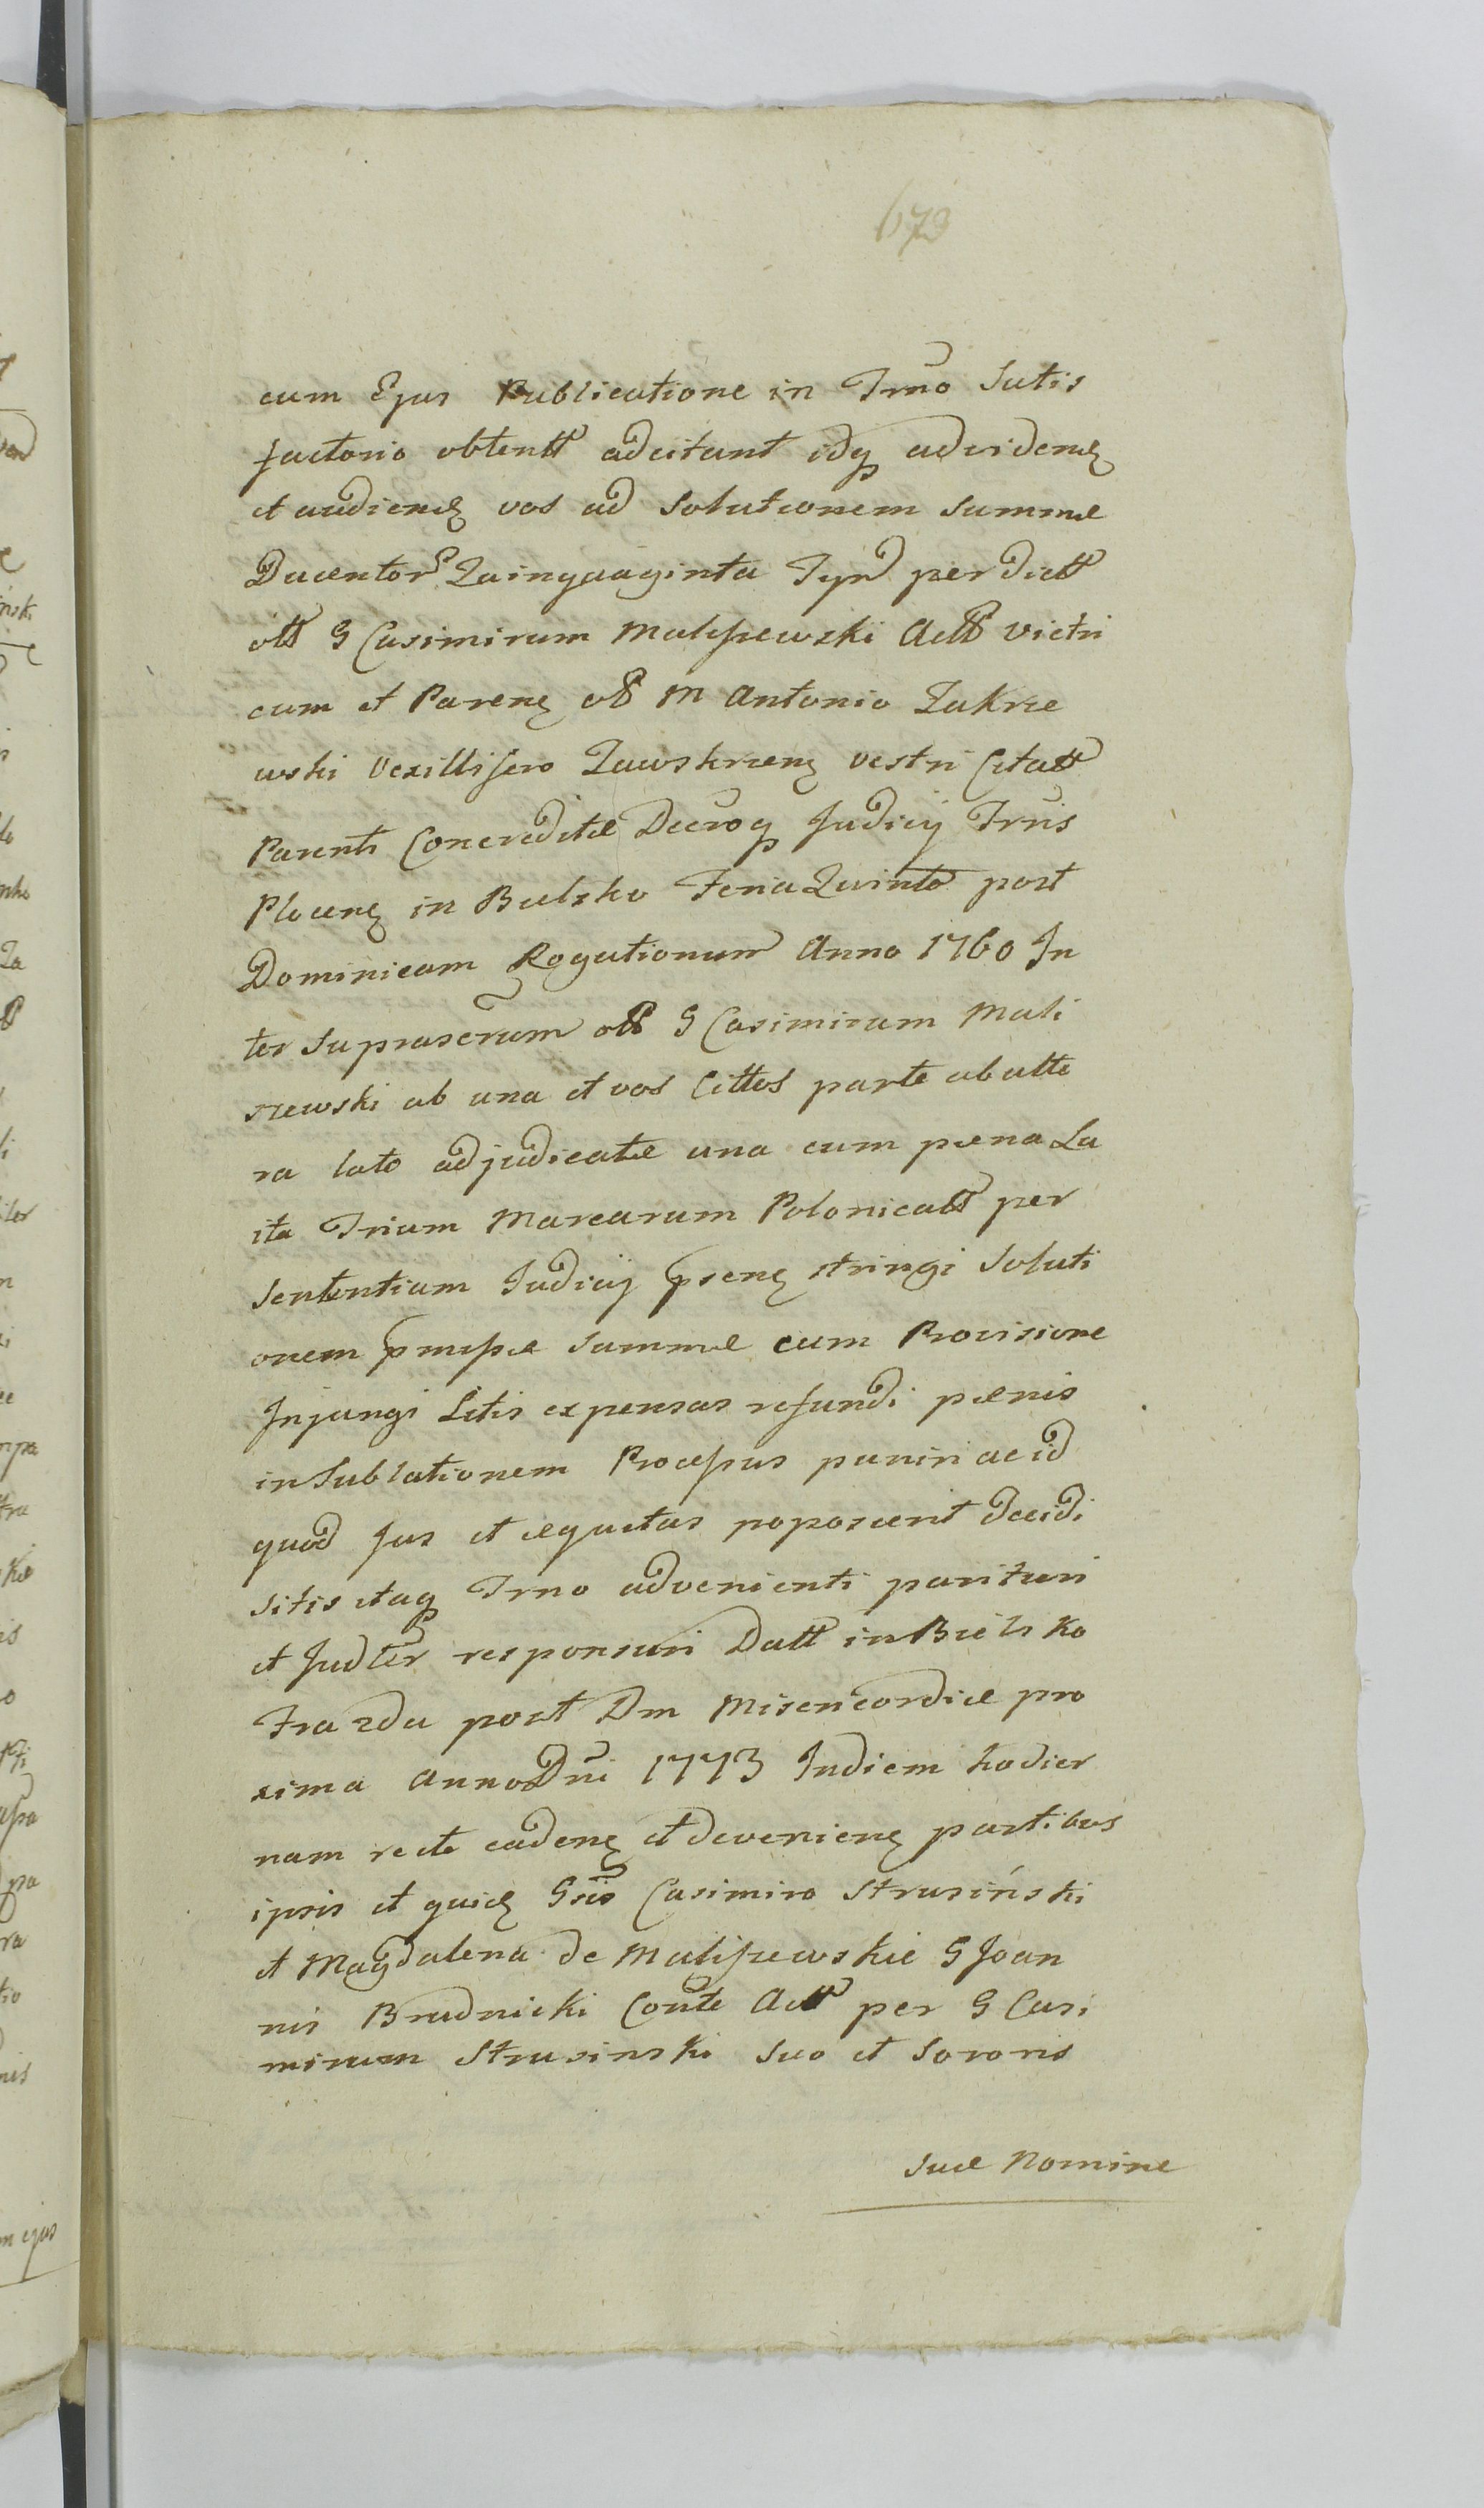 673
cum Ejus Publicatione in Trno Satis
factorio obtentt adcitant idq advidenḓ
et audienḓ vos ad Solutionem Summæ
Ducentor Quinquaginta Tynf per dictt
ott G Casimirum Maliszewski Actt vietri
cum et Parenẓ ott M Antonio Zakrze
wski Vexillifero Zawskrzenẓ vestri Citatt
Parenti Concreditæ Decroq Judicij Trris
Plocenẓ in Bielsko Feria Quinta post
Dominicam Rogationum Anno 1760 In
ter Suprascrum ott G Casimirum Mali
szewski ab una et vos Cittos parte ab alte
ra lato adjudicatæ una cum pæna La
ita Trium Marcarum Polonicatt per
Sententiam Judicij prsenẓ stringi Soluti
onem præmissæ Summæ cum Provisione
Injungi Litis expensas refundi pænis
in Sublationem Processus puniri ac id
quod Jus et æquitas poposcerit decidi
sitis itaq Trno advenienti parituri
et Judter responsuri Datt in Bielsko
Fra 2da post Dm Misericordiæ pro
xima Anno Dni 1773 In diem hodier
nam recte cadenẓ et devenienẓ partibus
ipsis et quidẓ Gsis Casimiro Strusiński
et Magdalena de Maliszewskie G Joan
nis Brudnicki Conte Actt per G Casi
mirum Strusinski suo et Sororis
suæ Nomine